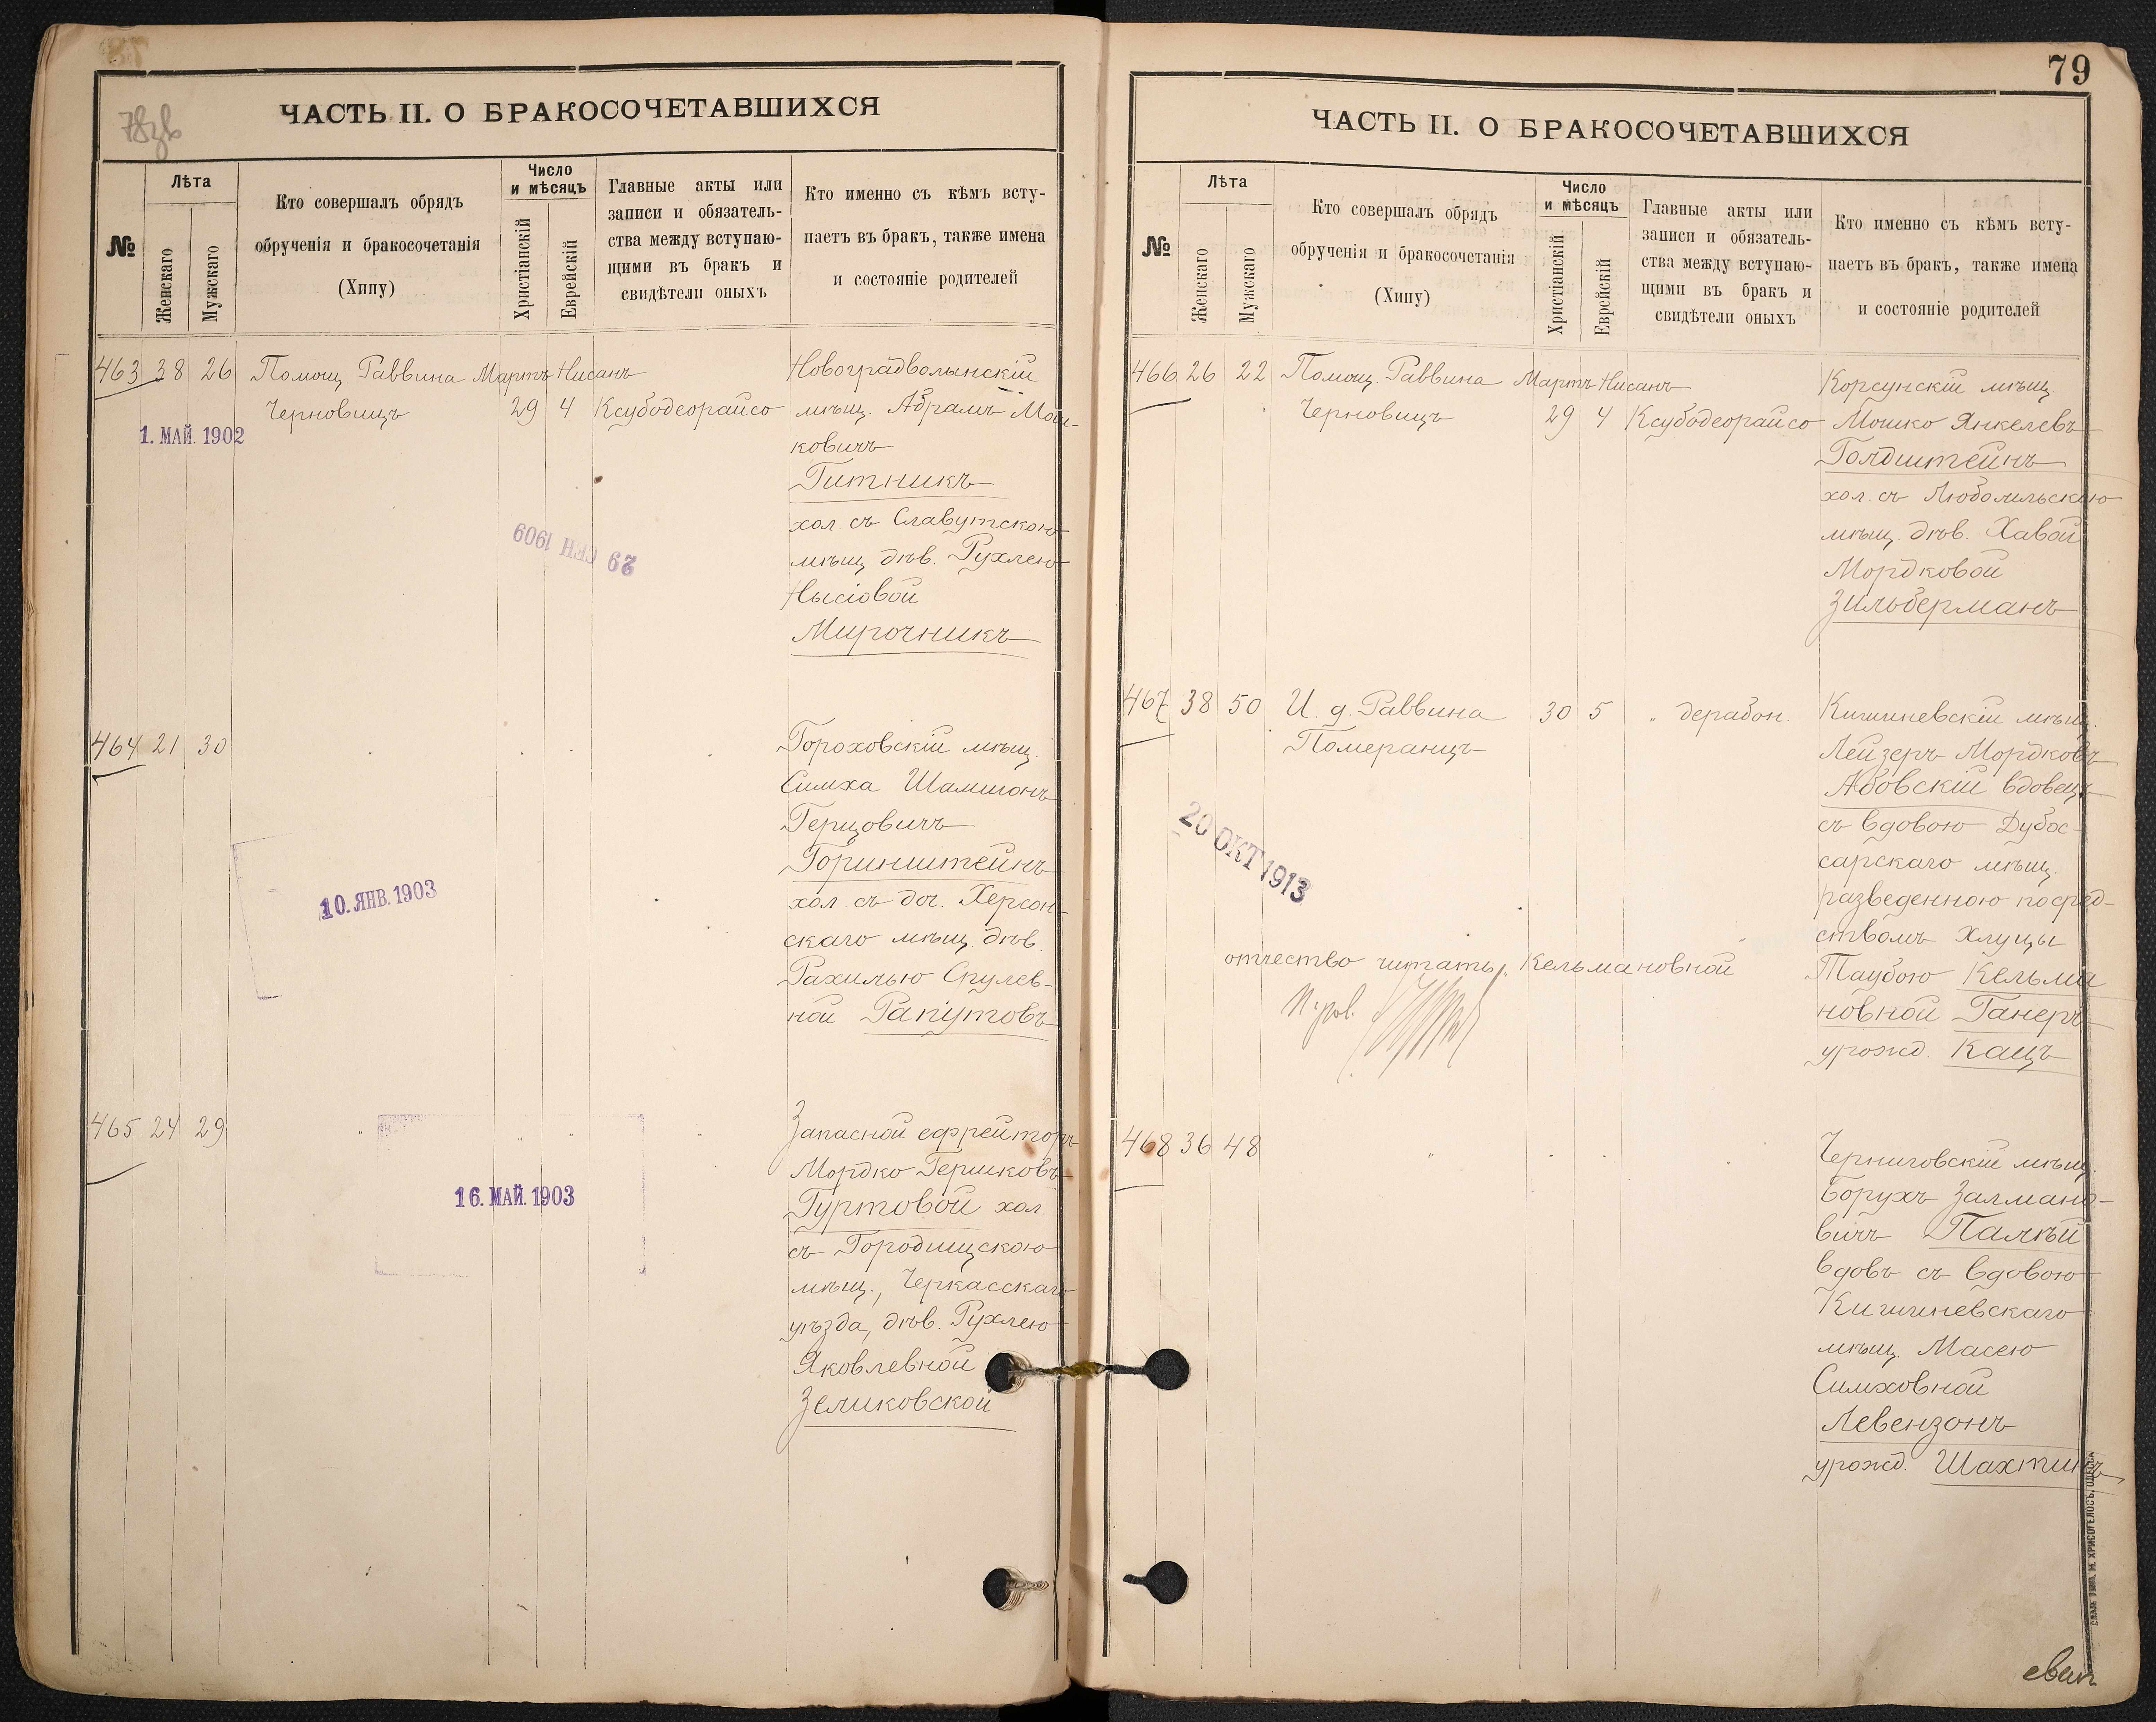 78зв
ЧАСТЬ II. О БРАКОСОЧЕТАВШИХСЯ
№
Лѣта
Женскаго
Мужскаго
Кто совершалъ обрядъ
обрученія и бракосочетанія
(Хипу)
Число
и мѣсяцъ
Христіанскій
Еврейскій
Главные акты или
записи и обязатель-
ства между вступаю-
щими въ бракъ и
свидѣтели оныхъ
Кто именно съ кѣмъ всту-
паетъ въ бракъ, также имена
и состояніе родителей
463 38 26 Помощ. Раввина Мартъ Нисанъ
Черновицъ 29 4 Ксубодеорайсо
1. МАЙ. 1902
29 СЕН 1909
Новоградволынскій
мѣщ. Абрамъ Мош-
ковичъ
Гитникъ
хол. съ Славутскою
мѣщ. дѣв. Рухлею
Нысіовой
Мирочникъ
464 21 30
10. ЯНВ. 1903
Гороховскій мѣщ.
Симха Шамшонъ
Герцовичъ
Горинштейнъ
хол. съ доч. Херсон-
скаго мѣщ. дѣв.
Рахилью Срулев-
ной Рапутовъ
465 24 29 " " " "
16. МАЙ. 1903
Запасной ефрейторъ
Мордко Гершковъ
Гуртовой хол
съ Городищскою
мѣщ., Черкасскаго
уѣзда, дѣв. Рухлею
Яковлевной
Зеликовской
79
ЧАСТЬ II. О БРАКОСОЧЕТАВШИХСЯ
№
Лѣта
Женскаго
Мужскаго
Кто совершалъ обрядъ
обрученія и бракосочетанія
(Хипу)
Число
и мѣсяцъ
Христіанскій
Еврейскій
Главные акты или
записи и обязатель-
ства между вступаю-
щими въ бракъ и
свидѣтели оныхъ
Кто именно съ кѣмъ всту-
паетъ въ бракъ, также имена
и состояніе родителей
466 26 22 Помощ. Раввина Мартъ Нисанъ
Черновицъ 29 4 Ксубодеорайсо
Корсунскій мѣщ.
Мошко Янкелевъ
Голдштейнъ
хол. съ Любомльскою
мѣщ. дѣв. Хавой
Мордковой
Зильберманъ
467 38 50 И. д. Раввина 30 5 " дерабон.
Померанцъ
20 ОКТ 1913
Кишиневскій мѣщ.
Лейзеръ Мордковъ
Абовскій вдовецъ
съ вдовою Дубос-
сарскаго мѣщ.
разведенною посред-
ствомъ Хлуцы
Таубою Кельма
новной Ганеръ
урожд. Кацъ
отчество читать: Кельмановной
468 36 48 " " " "
Черниговскій мѣщ.
Борухъ Залмано-
вичъ Палкъй
вдовъ съ вдовою
Кишиневскаго
мѣщ. Масею
Симховной
Левензонъ
урожд. Шахтинъ